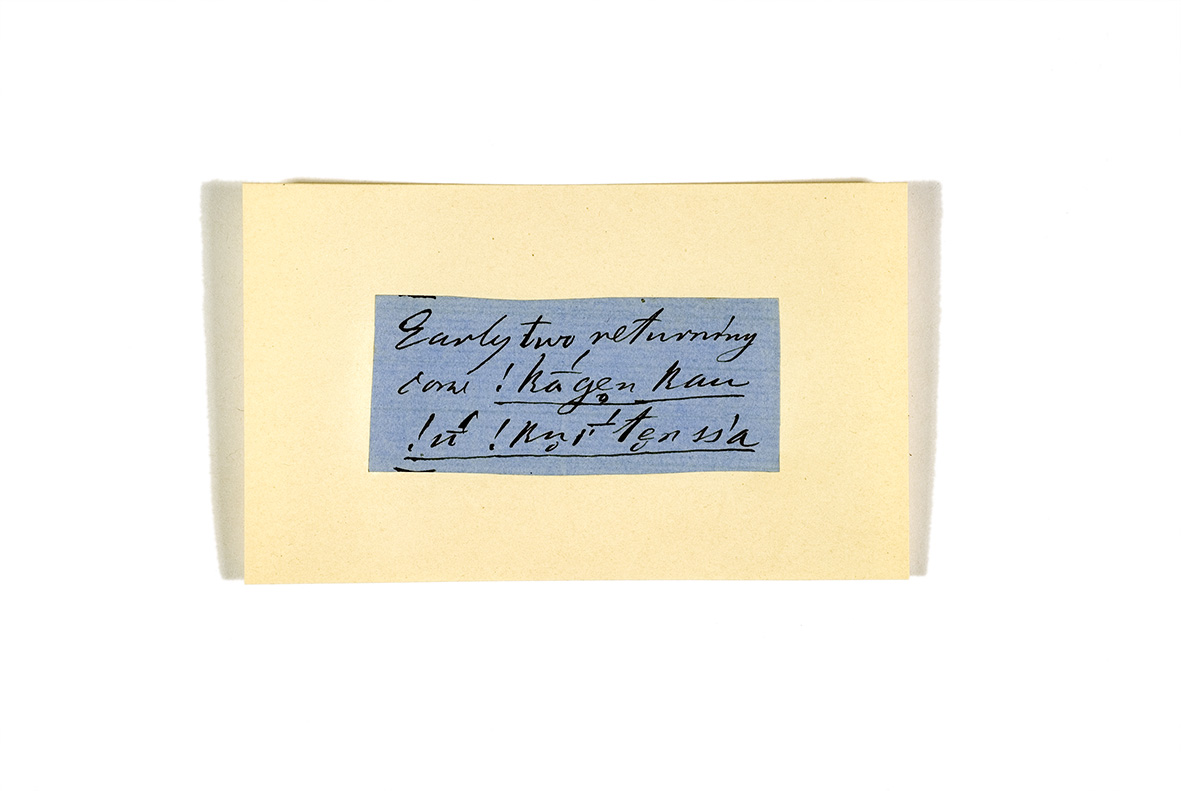 Early two returning
come !kā́gen kau
!ū́ !kṷḯ ten ss'a